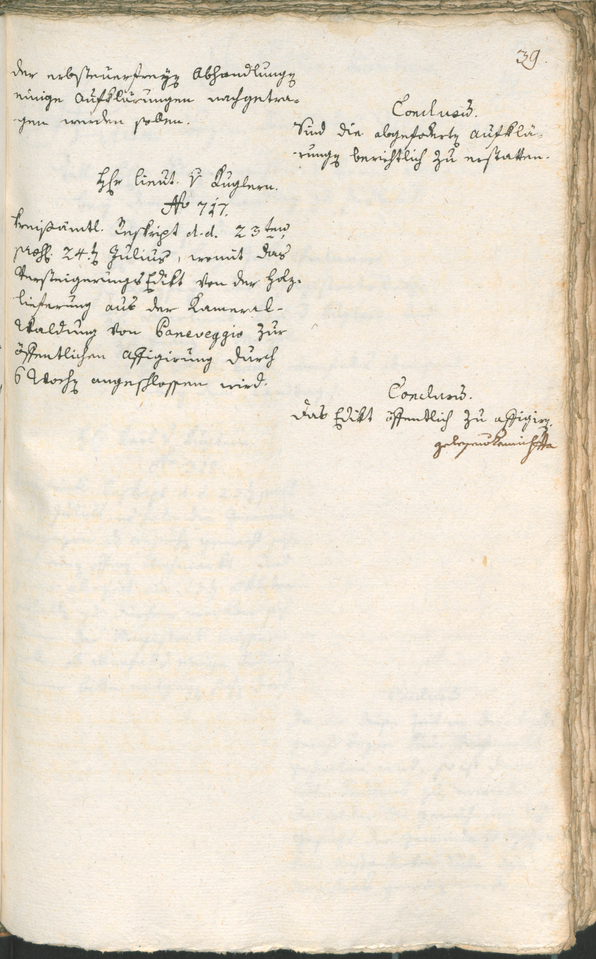 39.
der erbsteuerfreyen Abhandlungen
einige Aufklärungen nachgetra-
gen werden sollen.
Conclusum.
Sind die abgeforderten Aufklä-
rungen berichtlich zu erstatten.
Hr lieut. v Kuglern.
No 717.
Kreisämtl. Reskript d. d. 23ten
24ten Julius, womit das
Versteigerungs Edikt von der Holz-
lieferung aus der Kameral-
Waldung von Paneveggio zur
öffentlichen Affigirung durch
6 Wochen angeschlossen wird.
Conclusum.
Das Edikt öffentlich zu affigiren.